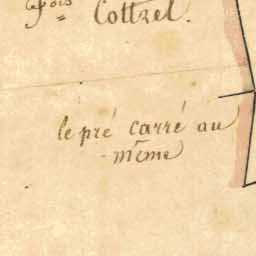 Cottzel.
le pré carré au
même